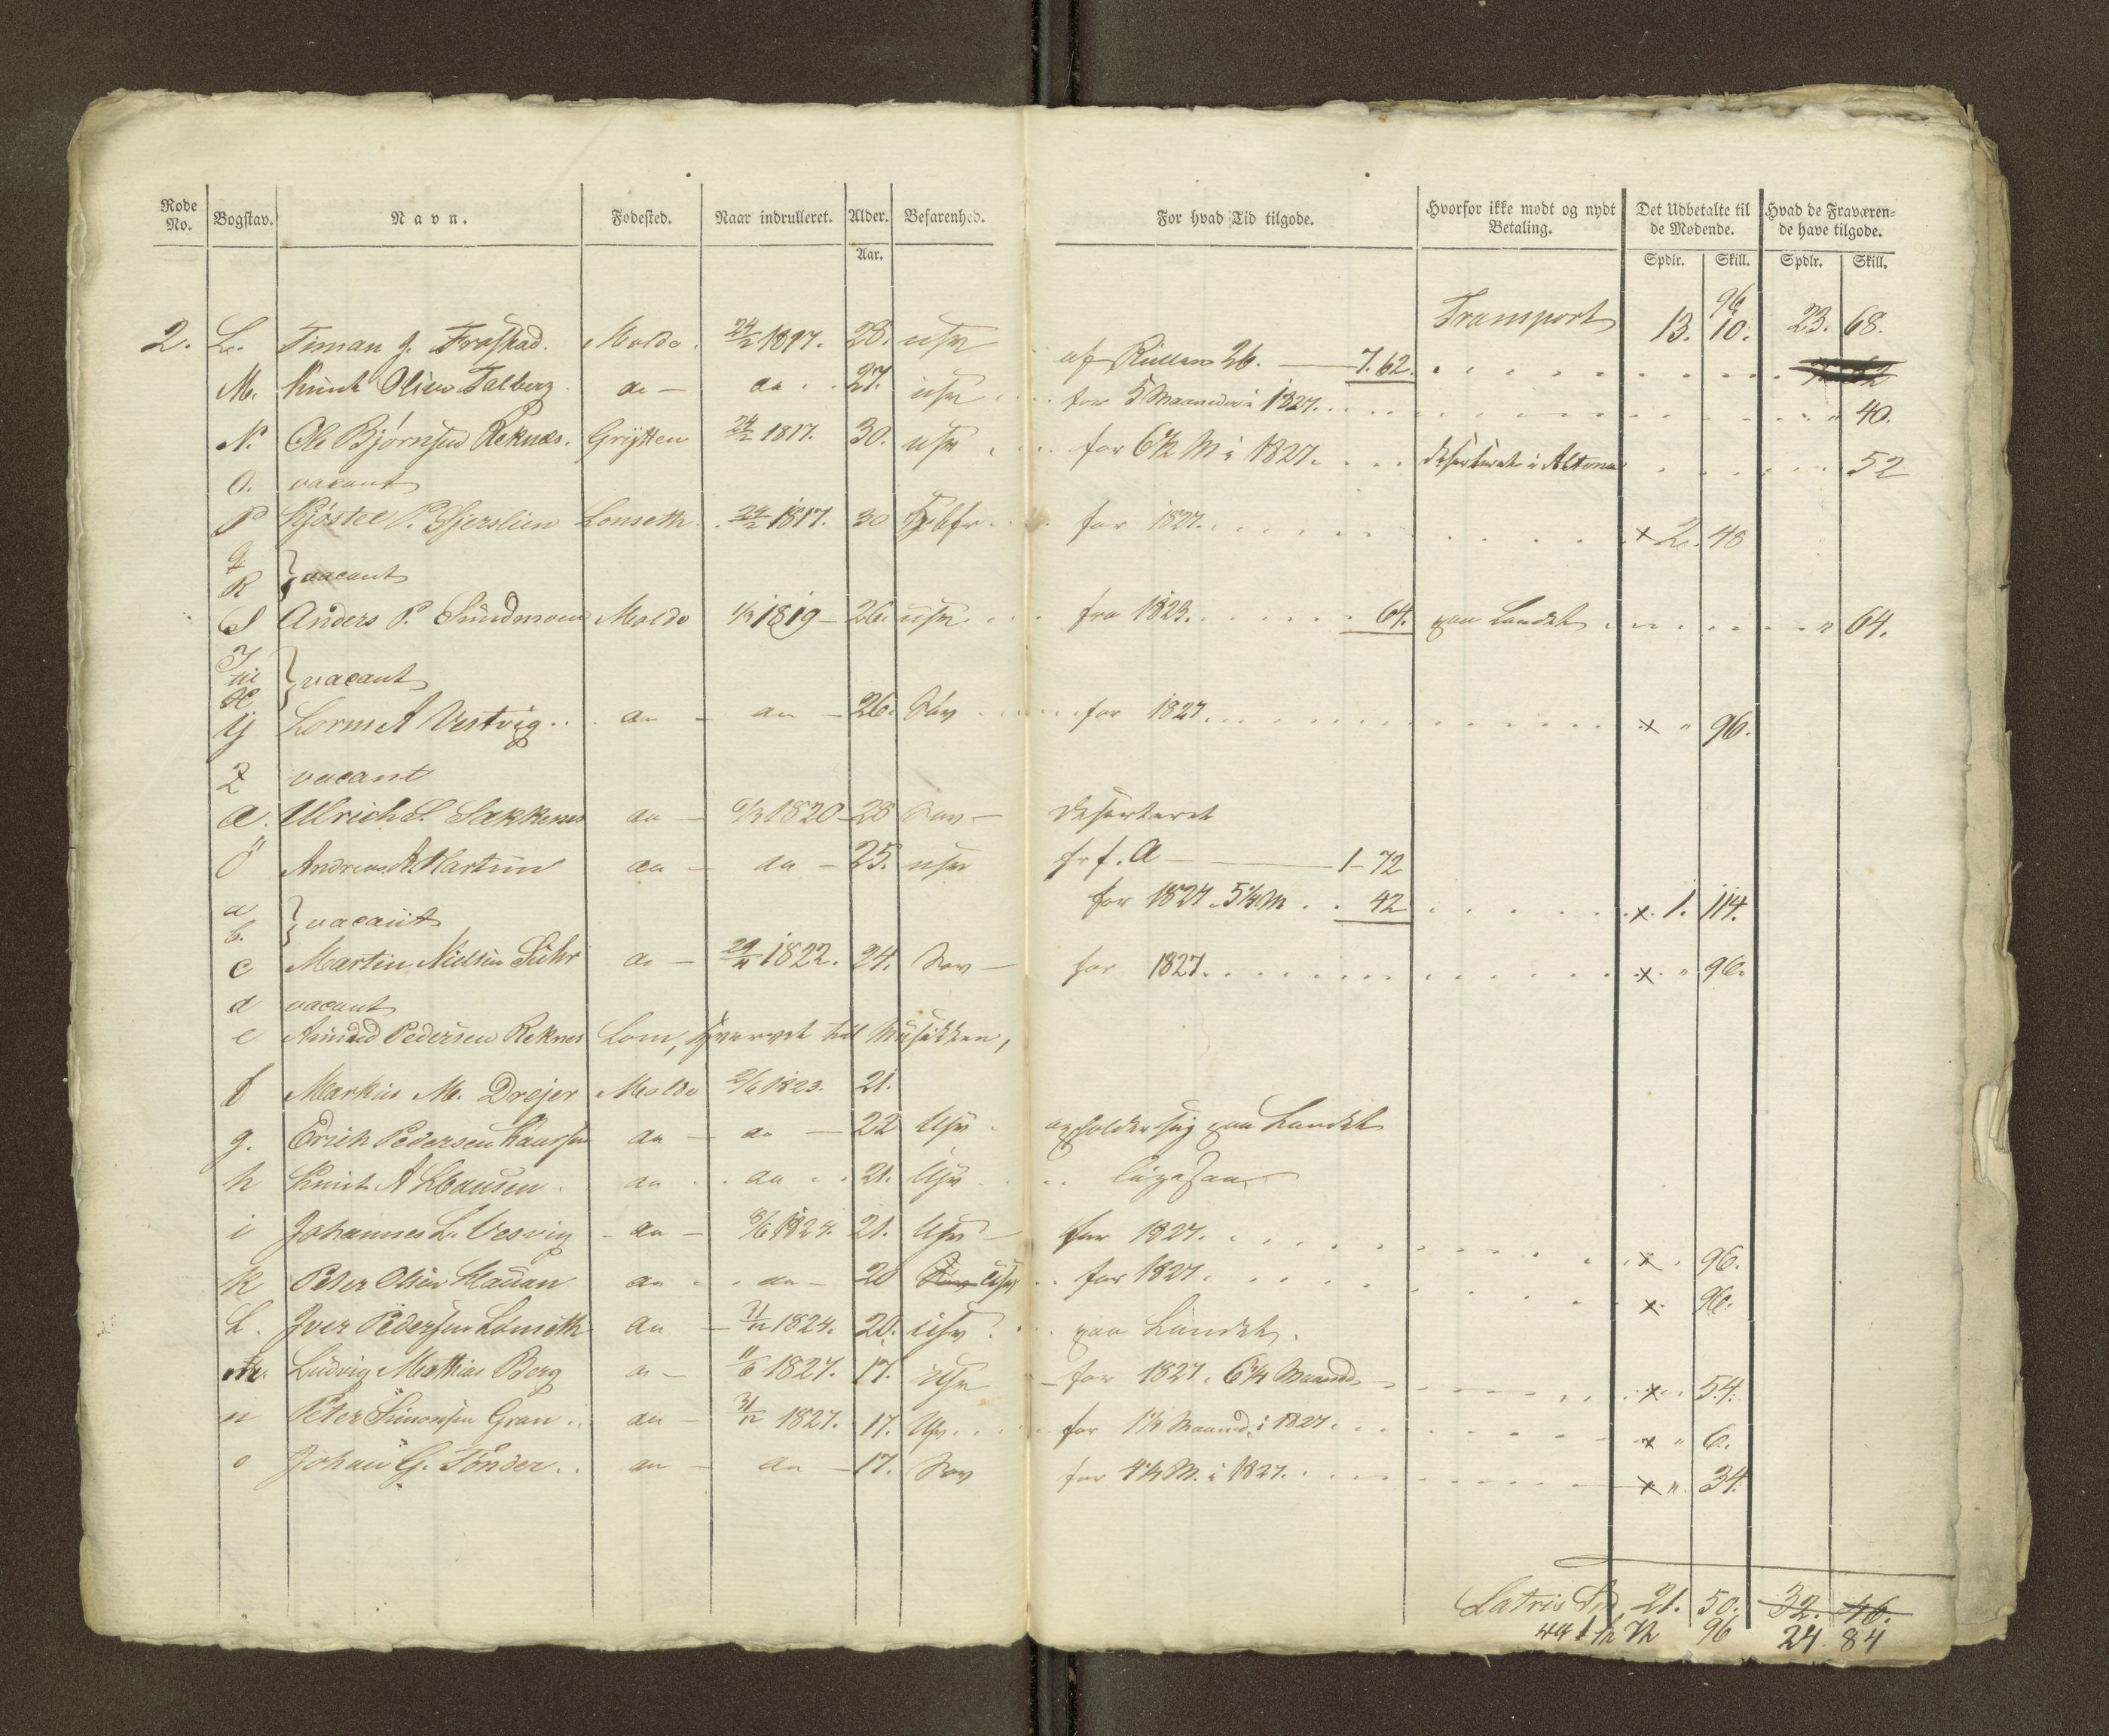 Rode No. Bogstav. Navn. Fødested. Naar indrulleret. Alder. Befarenhed. For hvad Tid tilgode. Hvorfor ikke mødt og nydt Betaling. Det Udbetalte til de Mødende. Hvad de Fraværende have tilgode.
Aar. Spdlr. Skill. Spdlr. Skill.
Transport 13. 10. 96 23. 68.
2. L. Timan J. Frostad. Molde. 24/2 1817. 28. usv af Rullen 26. 7.62.
M. Knut Olsen Talberg do do 27. usv for 5 Maaneder i 1827. " 40.
N. Ole Bjørnsen Reknes. Grytten 24/2 1817. 30. usv for 6½ M i 1827. deserteret i Altona 52
O. vacant
P Kjøstel P. Gjerslien Lonseth 24/2 1817. 30 for 1827. x 2. 48
q
R } vacant
S Anders P. Sundmoen Molde 1/2 1819 26. usv fra 1823. 64. paa Landet " 64.
T
U
X } vacant
Y Lorns A Vestvig do do 26. Søv for 1827. x " 96.
Z vacant
Æ. Ulrich L. Sakkenes do 6/3 1820 28 Søv deserteret
Ö Andreas A Martin do do 25. usv 1-72
for 1827. 5¼ M 42 x 1. 114.
a
b. } vacant
c Martin Nielsen Suhr do 29/4 1822. 24. Søv for 1827. x " 96.
d vacant
e Amund Pedersen Reknes Lom, hvervet til Musikken,
f Markus M. Drejer Molde 2/6 1823. 21.
g. Erich Pedersen do do 22 Usv opholder sig paa Landet
h Knut A Hansen do do 21. Usv ligesaa
i Johannes L. Vesvig do 8/6 1824. 21. Usv for 1827. x 96.
k Peter Olsen Hauan do do 20 usv for 1827. x 96.
L. Iver Pedersen Lonseth do 31/12 1824. 20. usv paa Landet.
m. Ludvig Mathias Berg do 11/6 1827. 17. usv for 1827. 6¾ Maaned x 54.
n Peter Simonsen Gran do 31/12 1827. 17. Usv for 1¼ Maaned i 1827. x " 6.
o Johan G. Tønder do do 17. Søv for 4¼ M. i 1827. x " 34.
Latris 21. 50. 32. 46.
72 96 24. 84